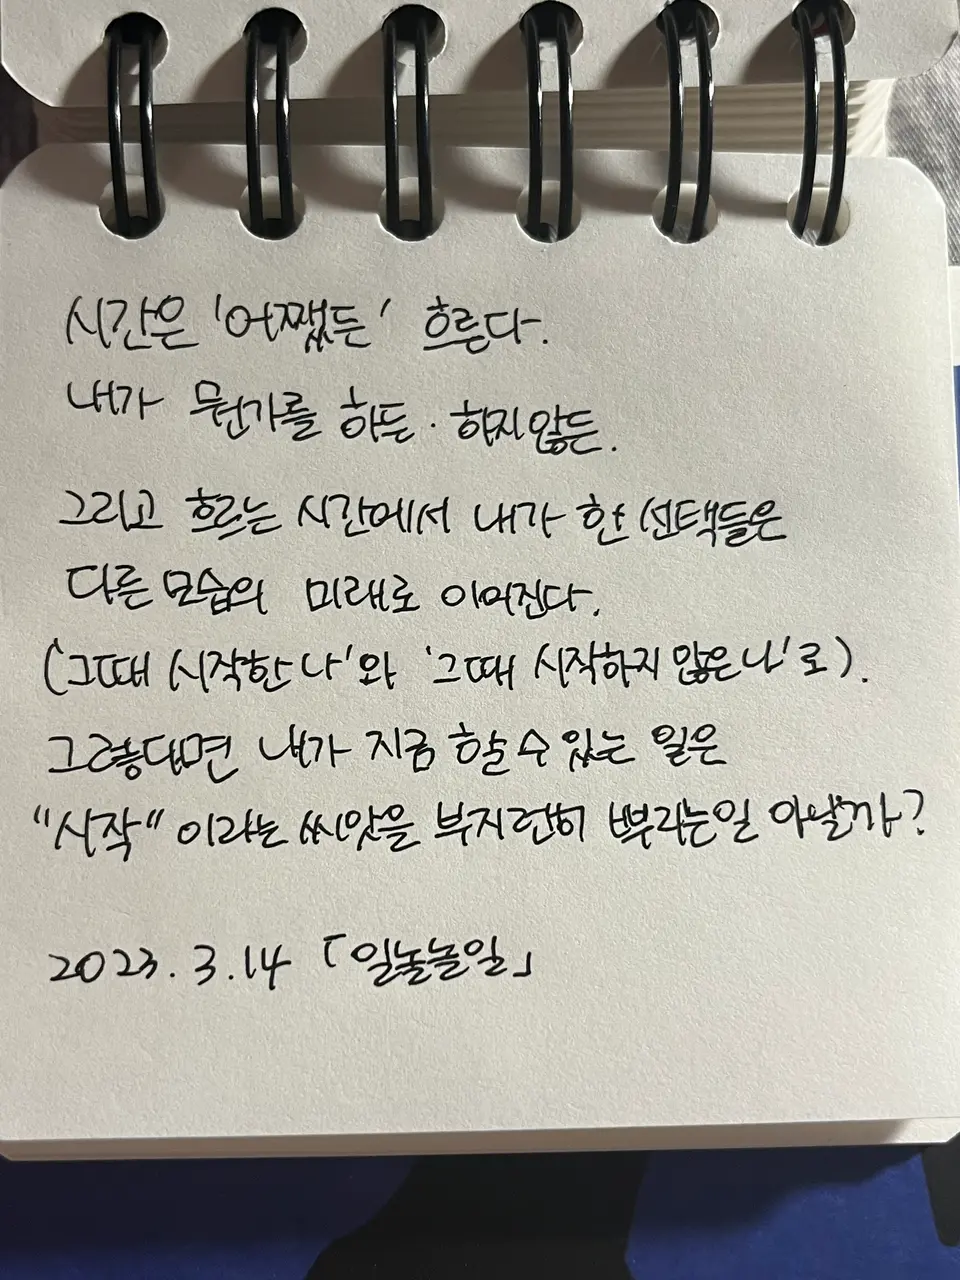 시간은 '어쨌든' 흐른다.
내가 뭔가를 하든. 하지않든.
그리고 흐르는 시간에서 내가 한 선택들은
다른 모습의 미래로 이어진다.
('그때 시작한 나'와 '그때 시작하지 않은 나'로).
그렇다면 내가 지금 할 수 있는 일은
"시작" 이라는 씨앗을 부지런히 뿌리는일 아닐까?
2023. 3. 14 「일놀놀일」